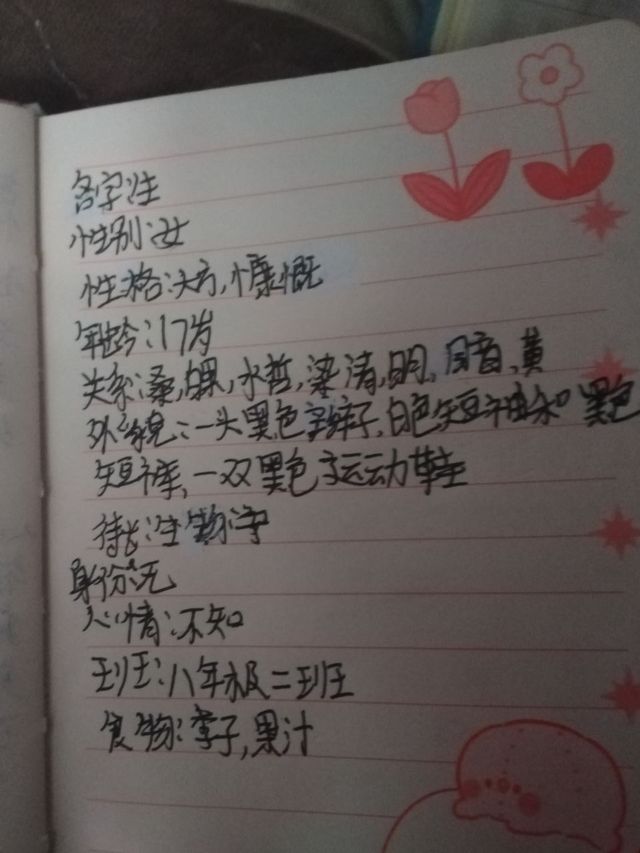 名字:生
性别:女
性格:大方,慷慨
年龄:17岁
关系:桑,果,水哲,梁清,明,音,黄
外貌:一头黑色辫子,白色短袖和黑色
短裤,一双黑色运动鞋
特长:生物学
身份:无
心情:不知
班班:八年极二班
食物:李子,果汁